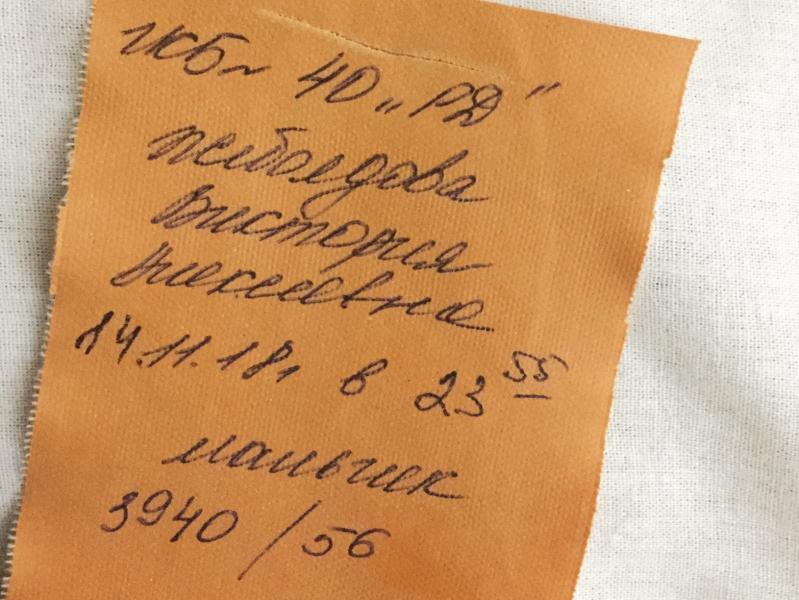 гкб № 40 „РД"
Виктория
Алексеевна
14.11.18г в 23 55
мальчик
3940 / 56